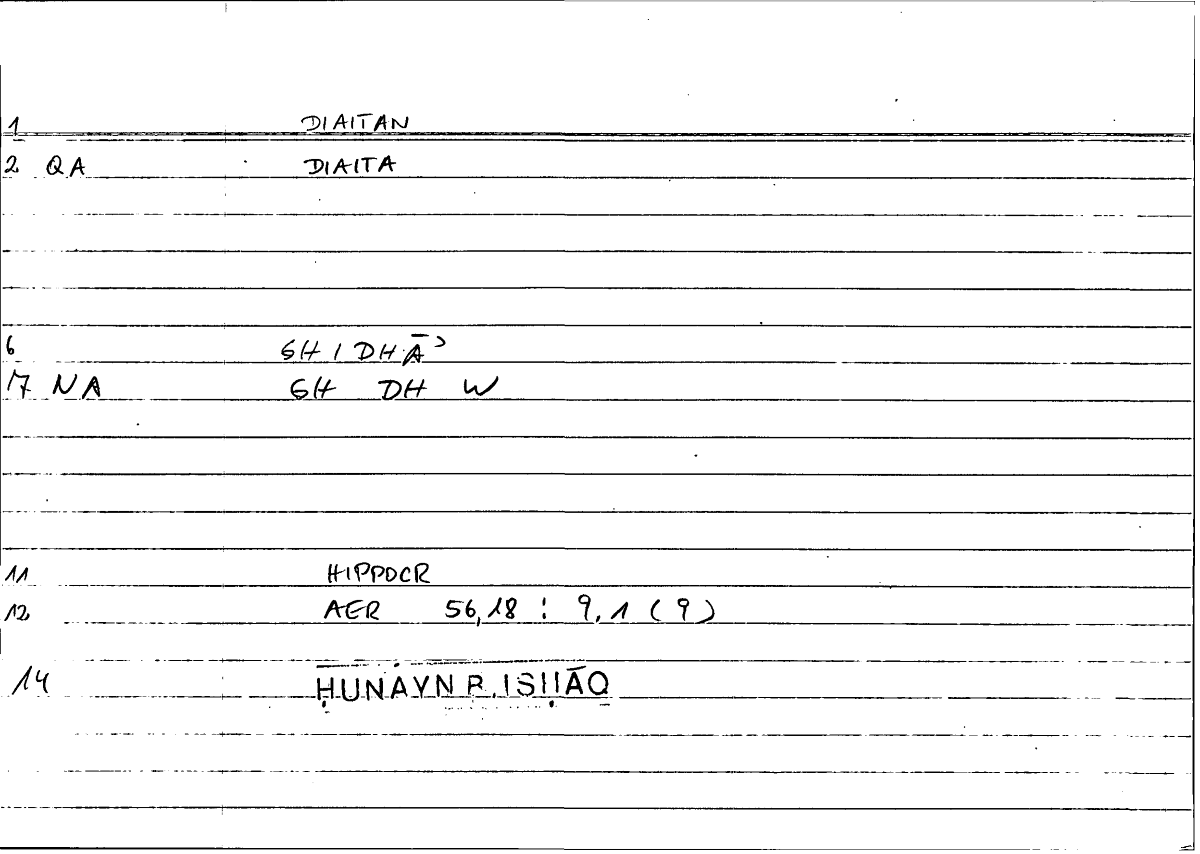 1 DIAITAN
2 QA DIAITA
6 GHIDHĀʾ
17 NA GH DH W
11 HIPPOCR
12 AER 56,18 : 9,1 (9)
14 ḤUNAYN B. ISḤĀQ